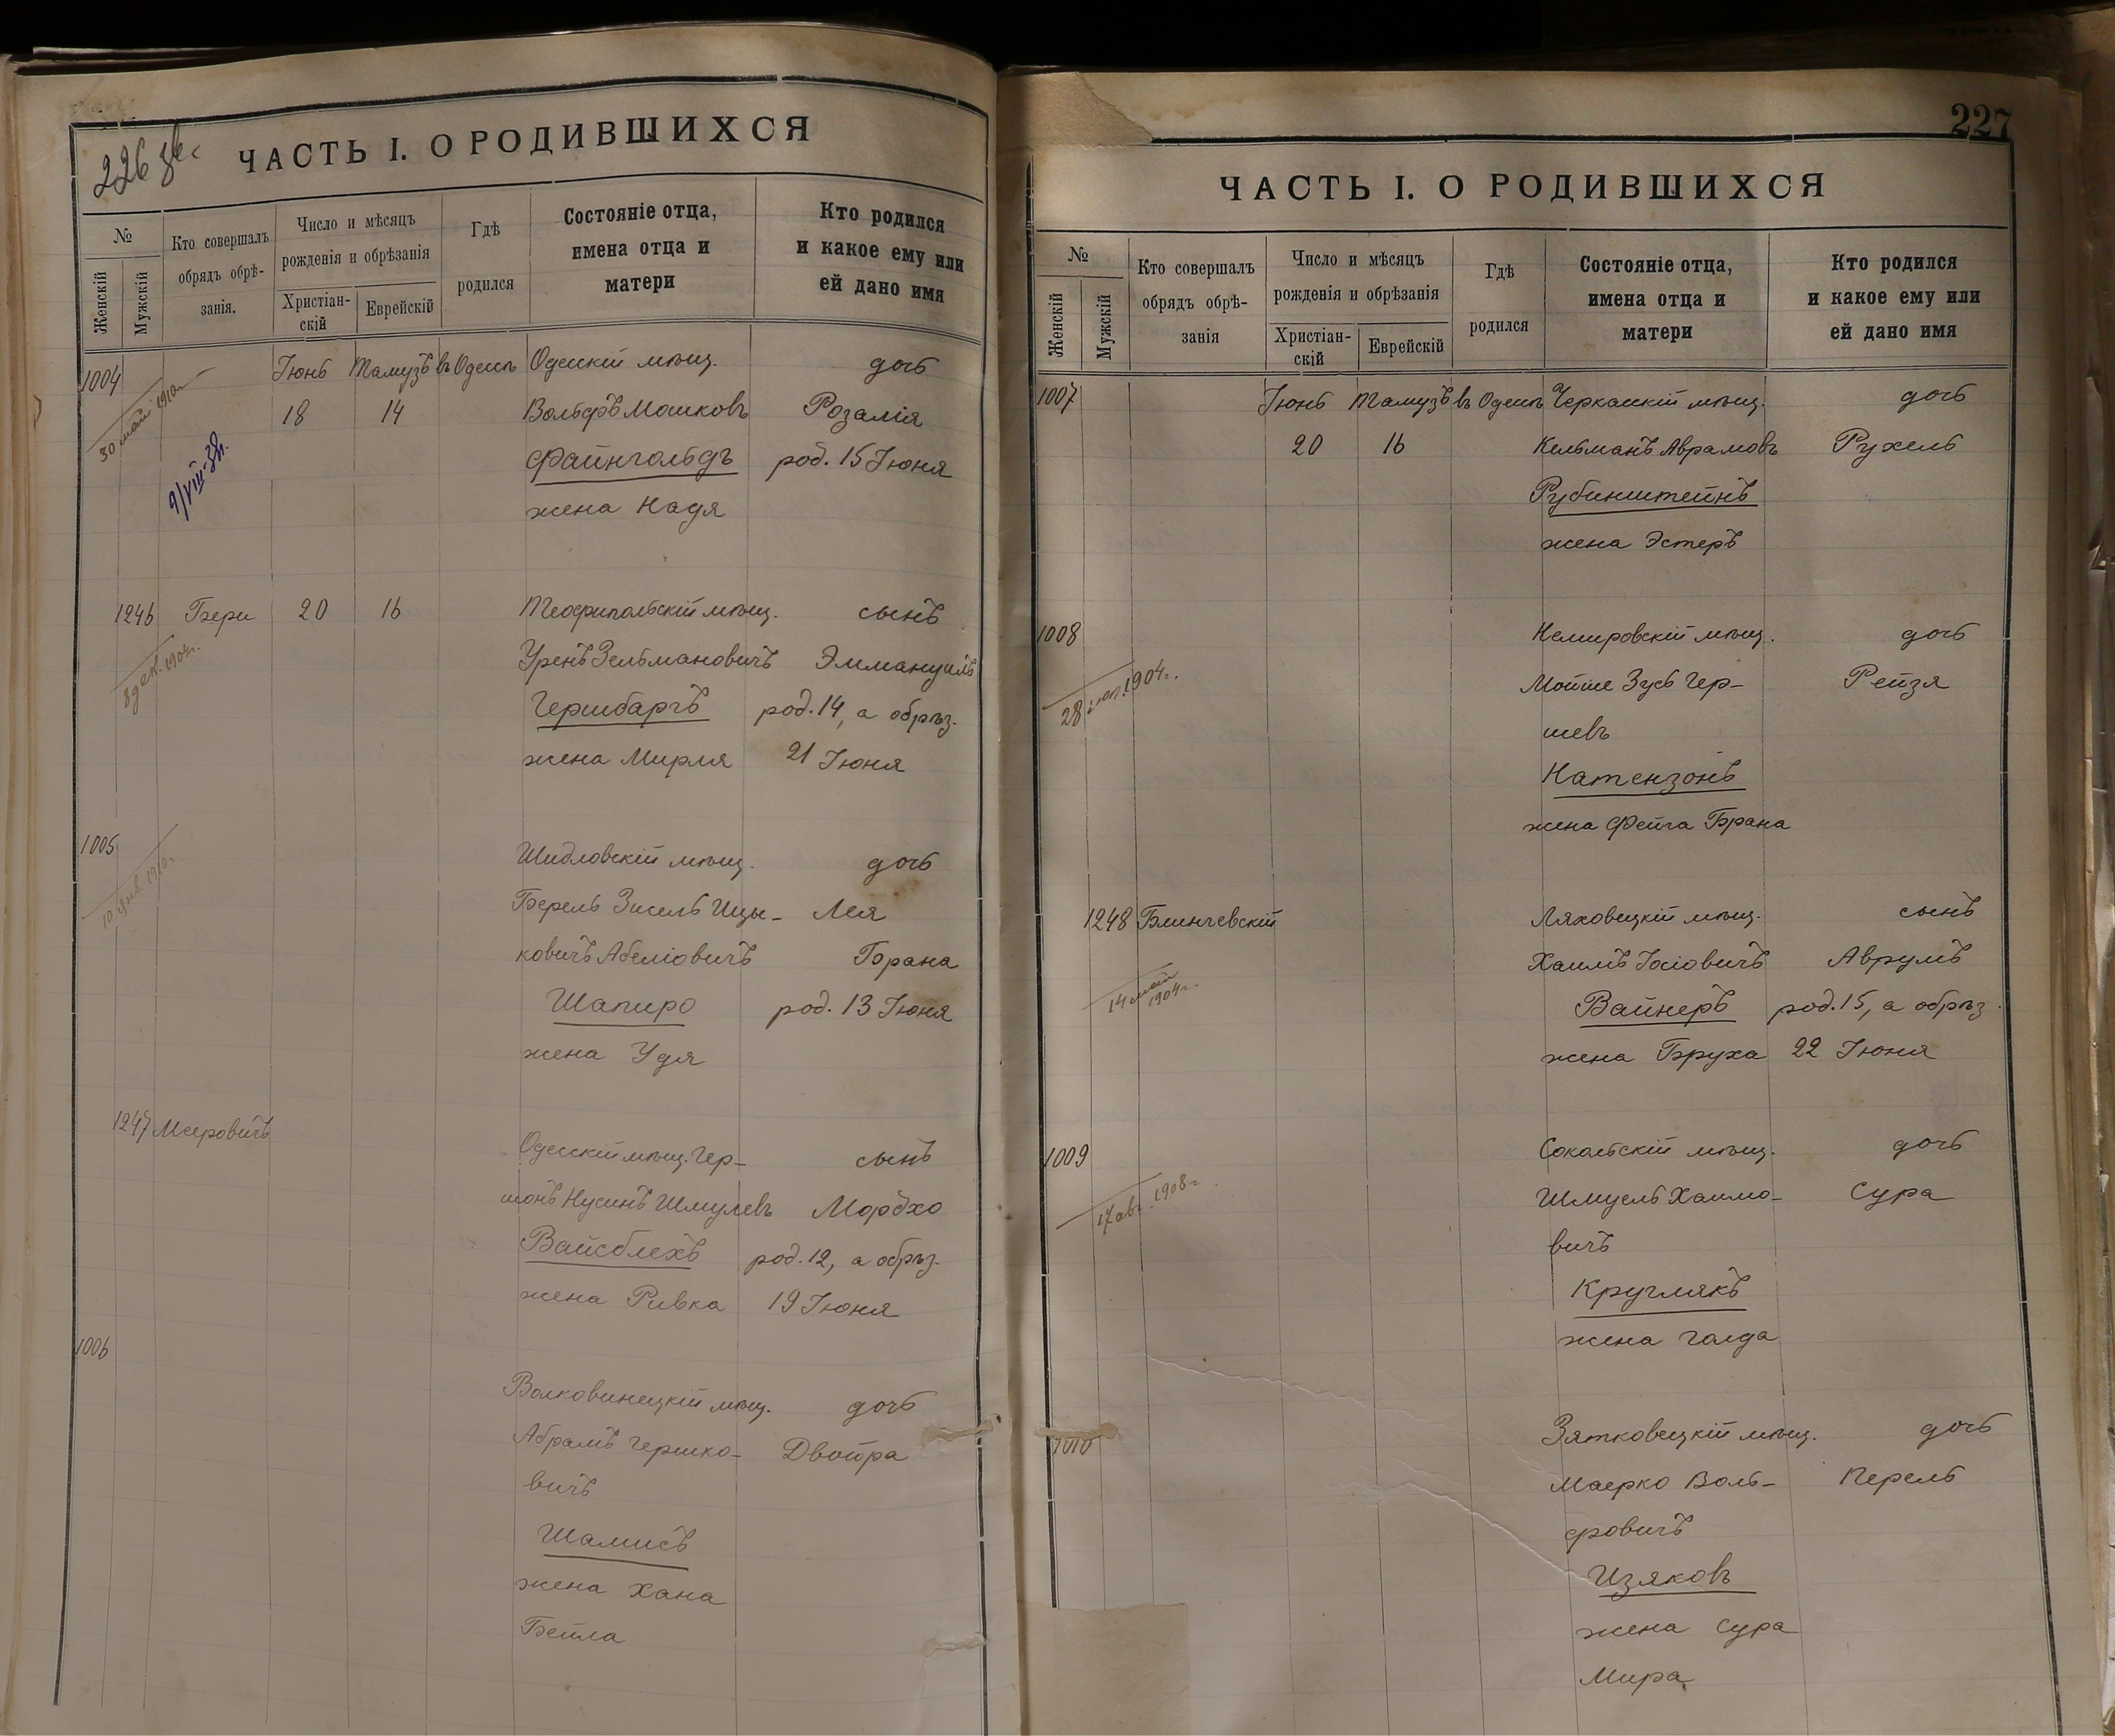 226 
ЧАСТЬ I. О РОДИВШИХСЯ
№
Женскій
Мужскій
Кто совершалъ
обрядъ обрѣ-
занія.
Число и мѣсяцъ
рожденія и обрѣзанія
Христіан-
скій
Еврейскій
Гдѣ
родился
Состояніе отца,
имена отца и
матери
Кто родился
и какое ему или
ей дано имя
1004 Іюнь Тамузъ въ Одессѣ Одесскій мѣщ. дочь
30 май 1910г
18 14 Вольфъ Мошковъ Розалія
Файнгольдъ род. 15 Іюня
9/VIII-
жена Надя
1246 Бери 20 16 Теофипольскій мѣщ. сынъ
8 дек. 1904г.
Уренъ Зельмановичъ Эммануилъ
Гершбаргъ род. 14, а обрѣз.
жена Мирля 21 Іюня
1005 Шидловскій мѣщ. дочь
10 янв. 1910г.
Берель Зисель Ицы- Лея
ковичъ Абеліовичъ Брана
Шапиро род. 13 Іюня
жена Удя
1247 Мееровичъ Одесскій мѣщ. Гер- сынъ
шонъ Нусинъ Шмулевъ Мордхо
Вайсблехъ род. 12, а обрѣз.
жена Ривка 19 Іюня
1006 Волковинецкій мѣщ. дочь
Абрамъ Гершко- Двойра
вичъ
Шамисъ
жена Хана
Бейла
227
ЧАСТЬ I. О РОДИВШИХСЯ
№
Женскій
Мужскій
Кто совершалъ
обрядъ обрѣ-
занія
Число и мѣсяцъ
рожденія и обрѣзанія
Христіан-
скій
Еврейскій
Гдѣ
родился
Состояніе отца,
имена отца и
матери
Кто родился
и какое ему или
ей дано имя
1007 Іюнь Тамузъ въ Одессѣ Черкасскій мѣщ. дочь
20 16 Кельманъ Аврамовъ Рухель
Рубинштейнъ
жена Эстеръ
1008 Немировскій мѣщ. дочь
28 1904г.
Мойше Зусь Гер- Рейзя
шевъ
Натензонъ
жена Фейга Брана
1248 Блинчевскій Ляховецкій мѣщ. сынъ
14 май
1904г.
Хаимъ Іосіовичъ Аврумъ
Вайнеръ род. 15, а обрѣз.
жена Бруха 22 Іюня
1009 Сокольскій мѣщ. дочь
17 авг. 1908г.
Шмуель Хаимо- Сура
вичъ
Круглякъ
жена Голда
1010 Зятковецкій мѣщ. дочь
Маерко Воль- Перель
фовичъ
Изяковъ
жена Сура
Мира